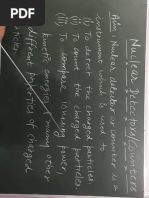 Nuclear Detectors/Counters
Aim: Nuclear detector or counter is a
instrument which is used to
(i) To detect the charged particles
(ii) To count the charged particles.
(iii) To compare ionising power,
kinetic energies & many other
different properties of charged
particles.